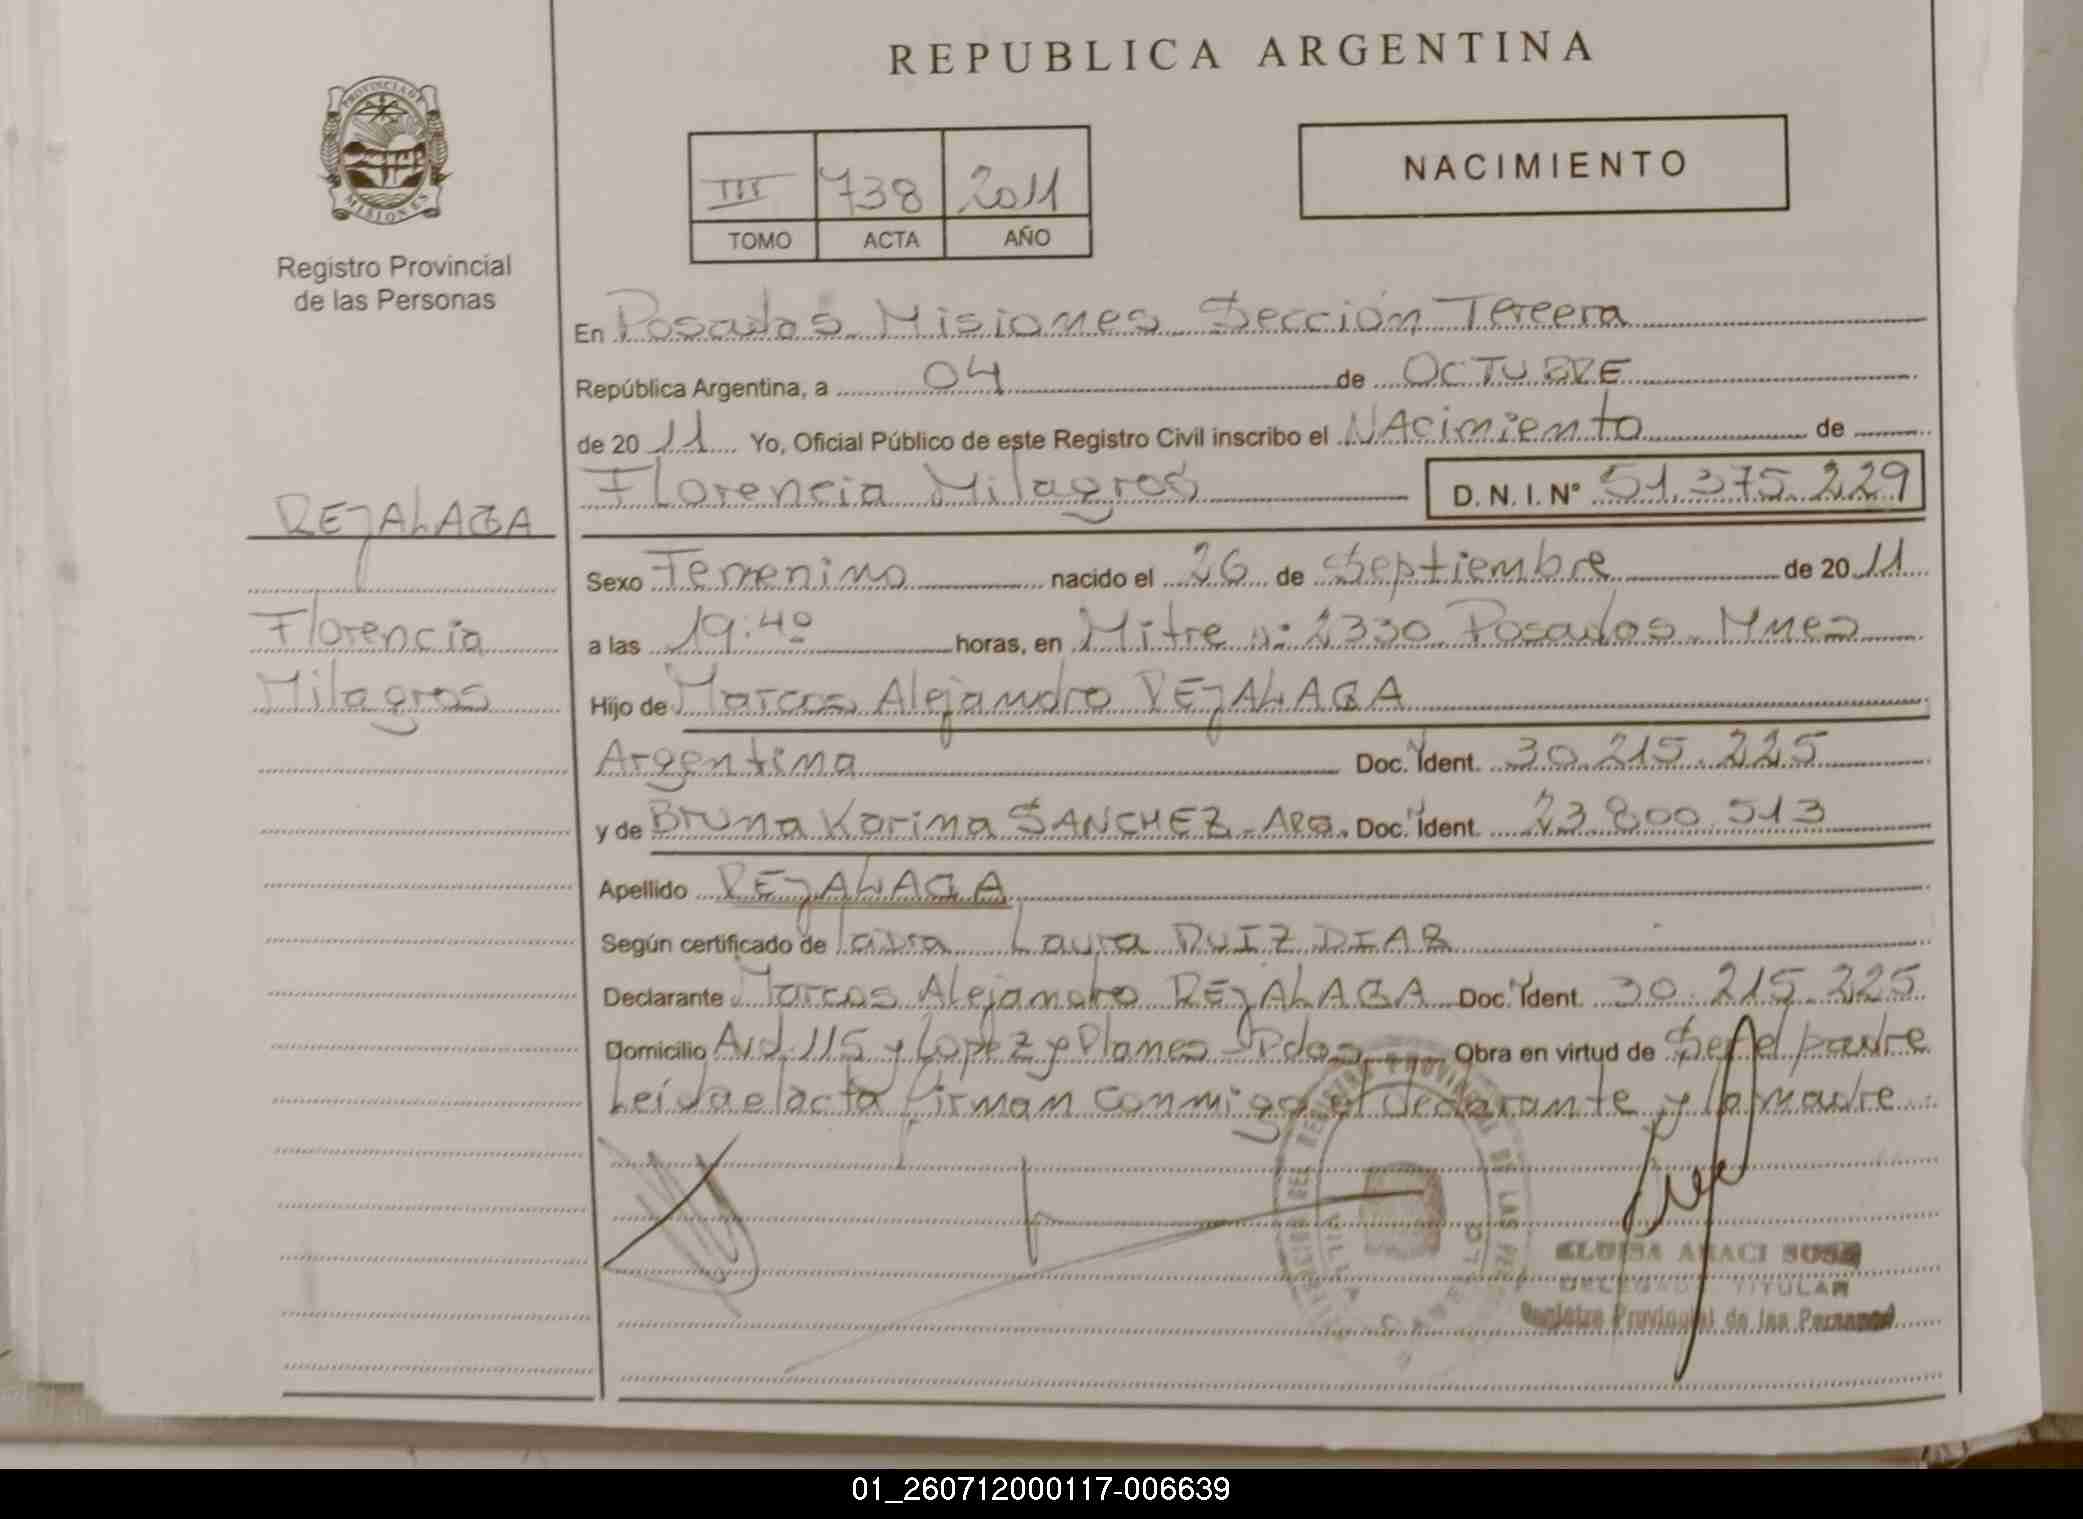 REPUBLICA ARGENTINA
PROVINCIA DE
MISIONES
Registro Provincial
de las Personas
III 738 2011
TOMO ACTA AÑO
NACIMIENTO
En Posadas Misiones Sección Tercera
República Argentina, a 04 de OCTUBRE
de 2011 Yo, Oficial Público de este Registro Civil inscribo el NAcimiento de
Florencia Milagros D.N.I.N° 51.375.229
REJALAGA
Florencia
Milagros
Sexo Femenino nacido el 26 de Septiembre de 2011
a las 19:40 horas, en Mitre N: 2330 Posadas Mnes
Hijo de Marcos Alejandro REJALAGA
Argentina Doc. Ident. 30.215.225
y de Bruna Karina SANCHEZ - ARG. Doc. Ident. 23.800.513
Apellido REJALAGA
Según certificado de Laura RUIZ DIAZ
Declarante Marcos Alejandro REJALAGA Doc. Ident. 30.215.225
Domicilio Avd. 115 y Lopez y Planes Pdas Obra en virtud de Ser el padre
Leída el acta firman conmigo el declarante y la madre
ARACI SOSA
DELEGADA TITULAR
Registro Provincial de las Personas
01_260712000117-006639